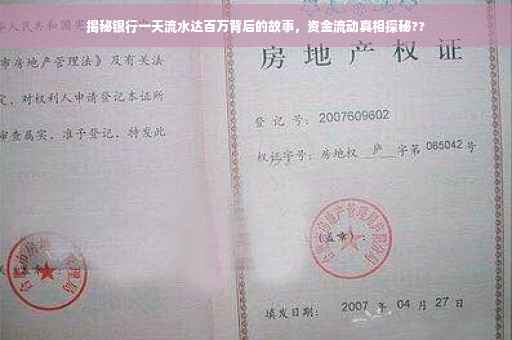 揭秘银行一天流水达百万背后的故事，资金流动真相探秘??
华人民共和国宪
市房地产管理法》及有关法
定，对权利人申请登记本证所
审查属实，准予登记，特发此
房地产权
登记号：2007609602
权证字号：房地权 庐 字第 085042 号
（盖章）：
填发日期：2007 年 04 月 27 日